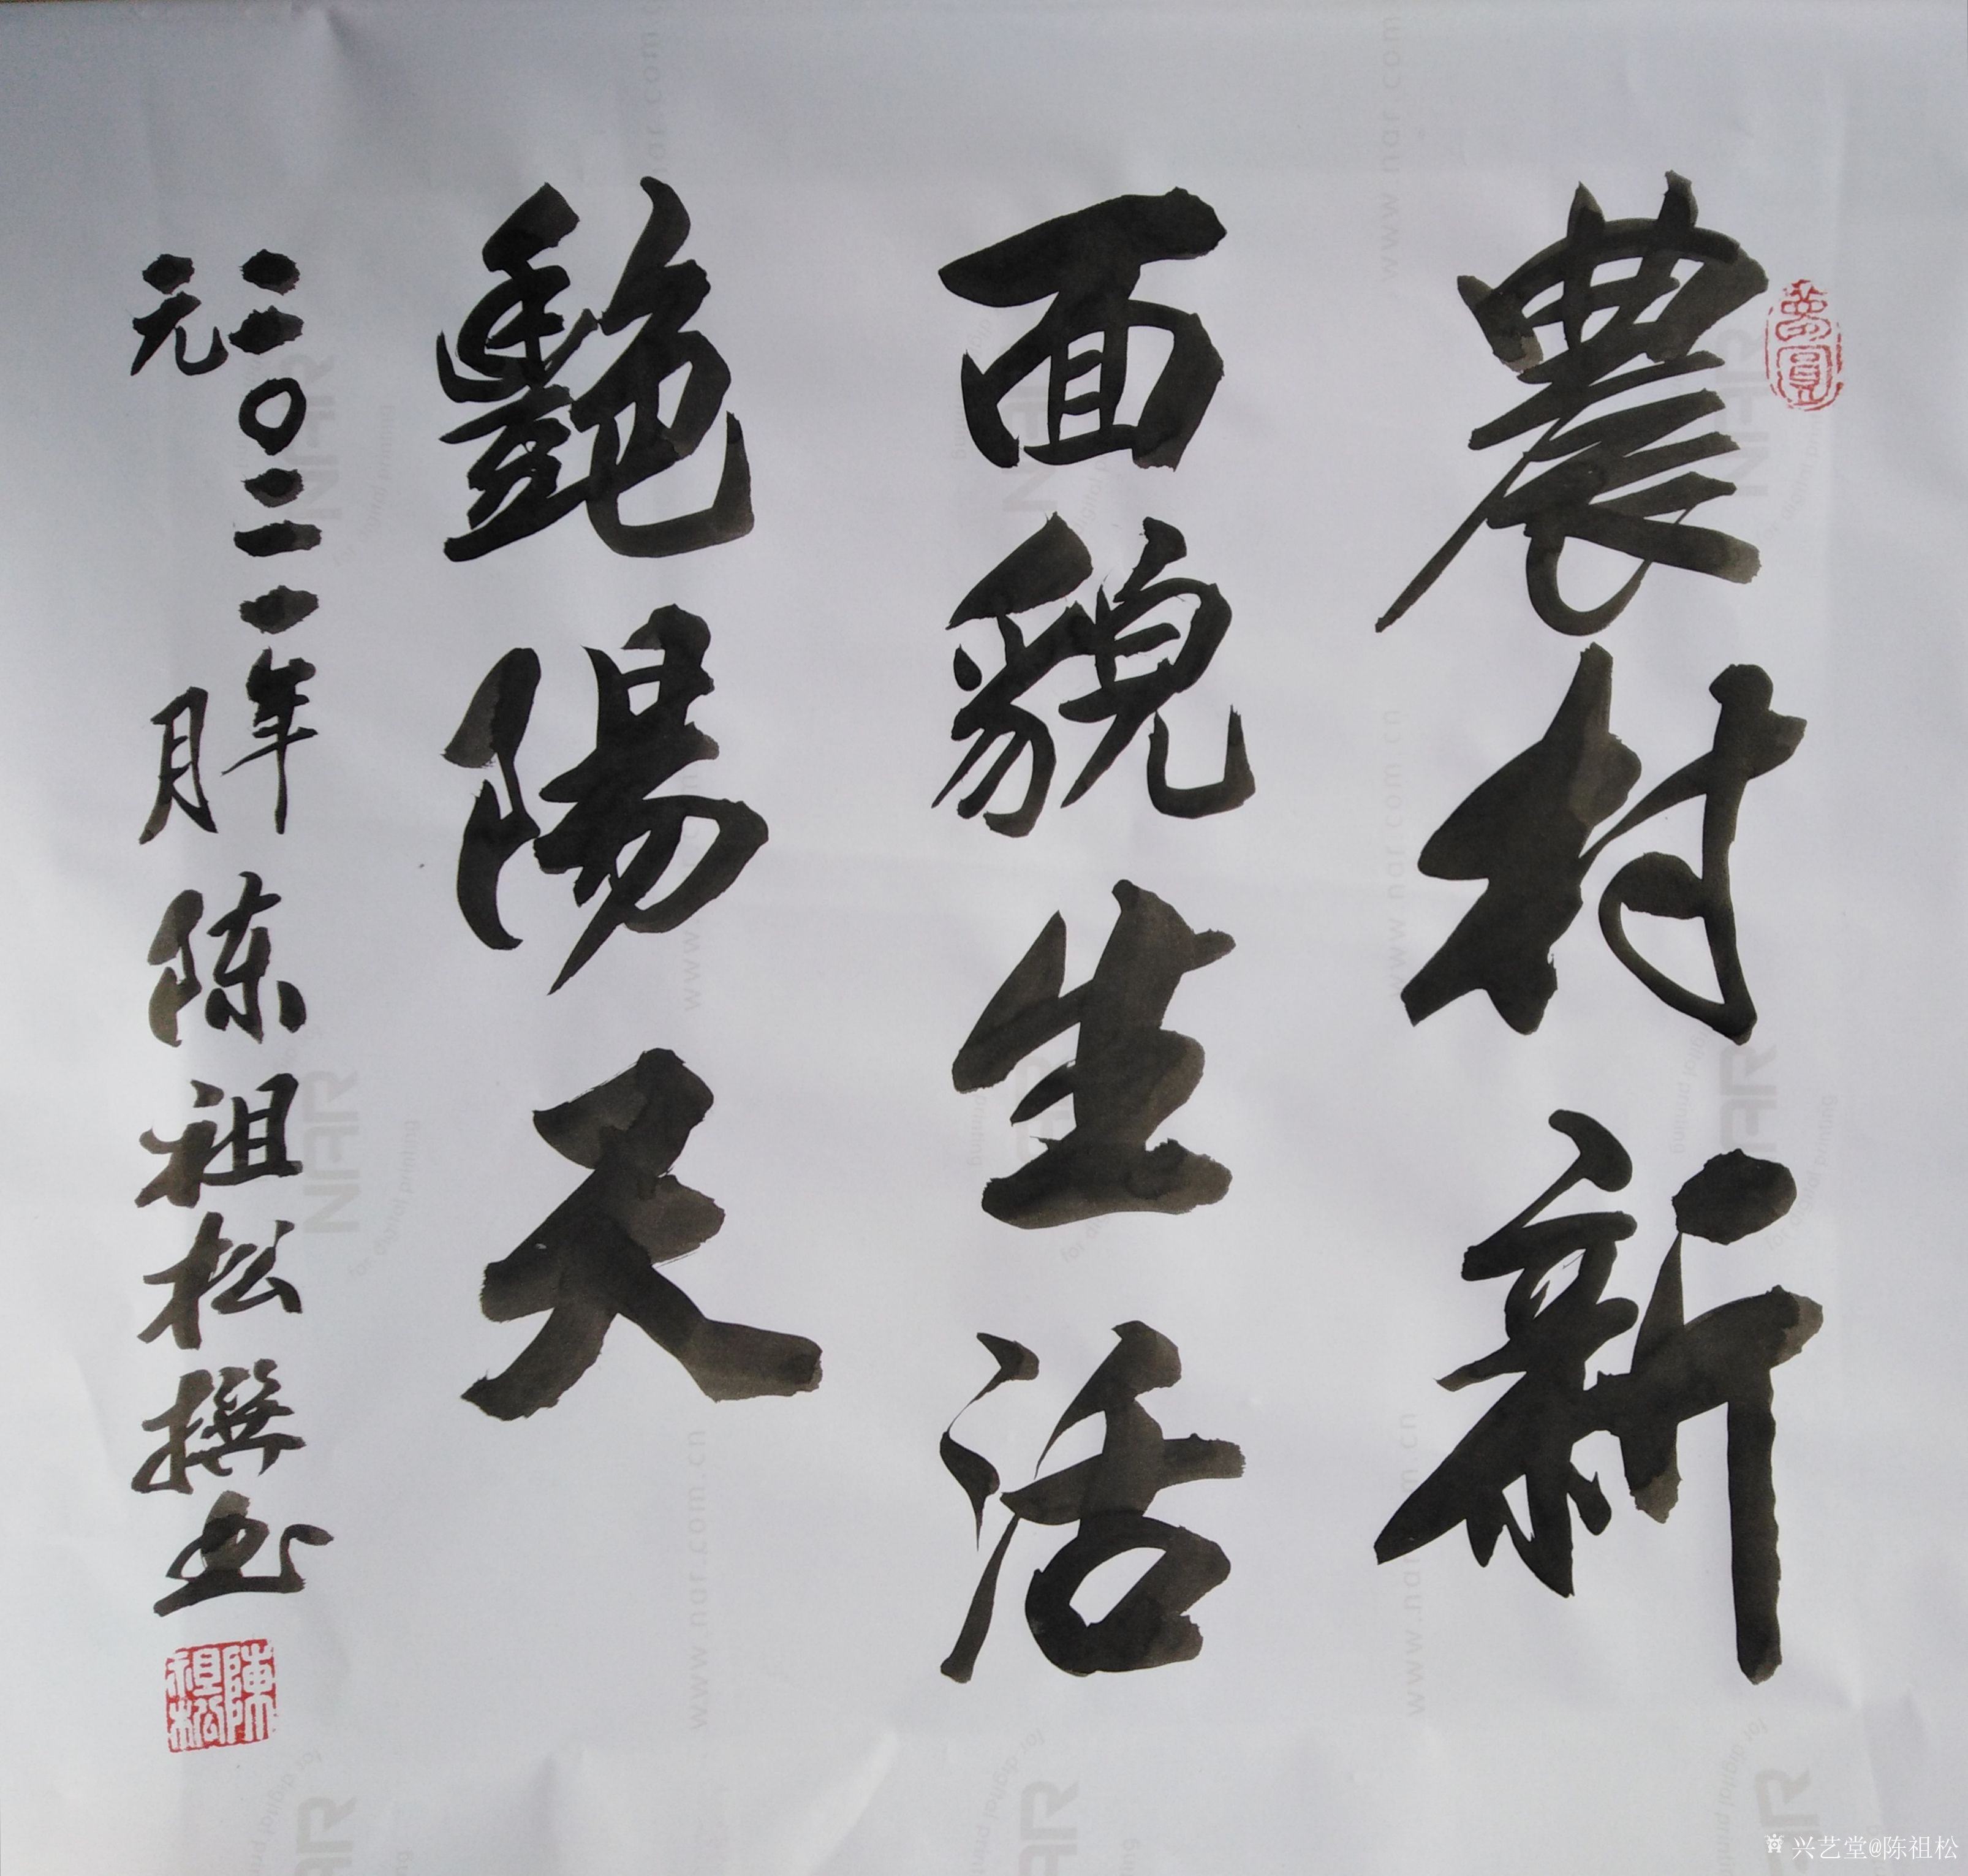 農村新
面貌生活
艷陽天
二〇二一年
元月 陈祖松撰书
陳祖松
兴艺堂@陈祖松
www.nar.com.cn
NAR
for digital printing